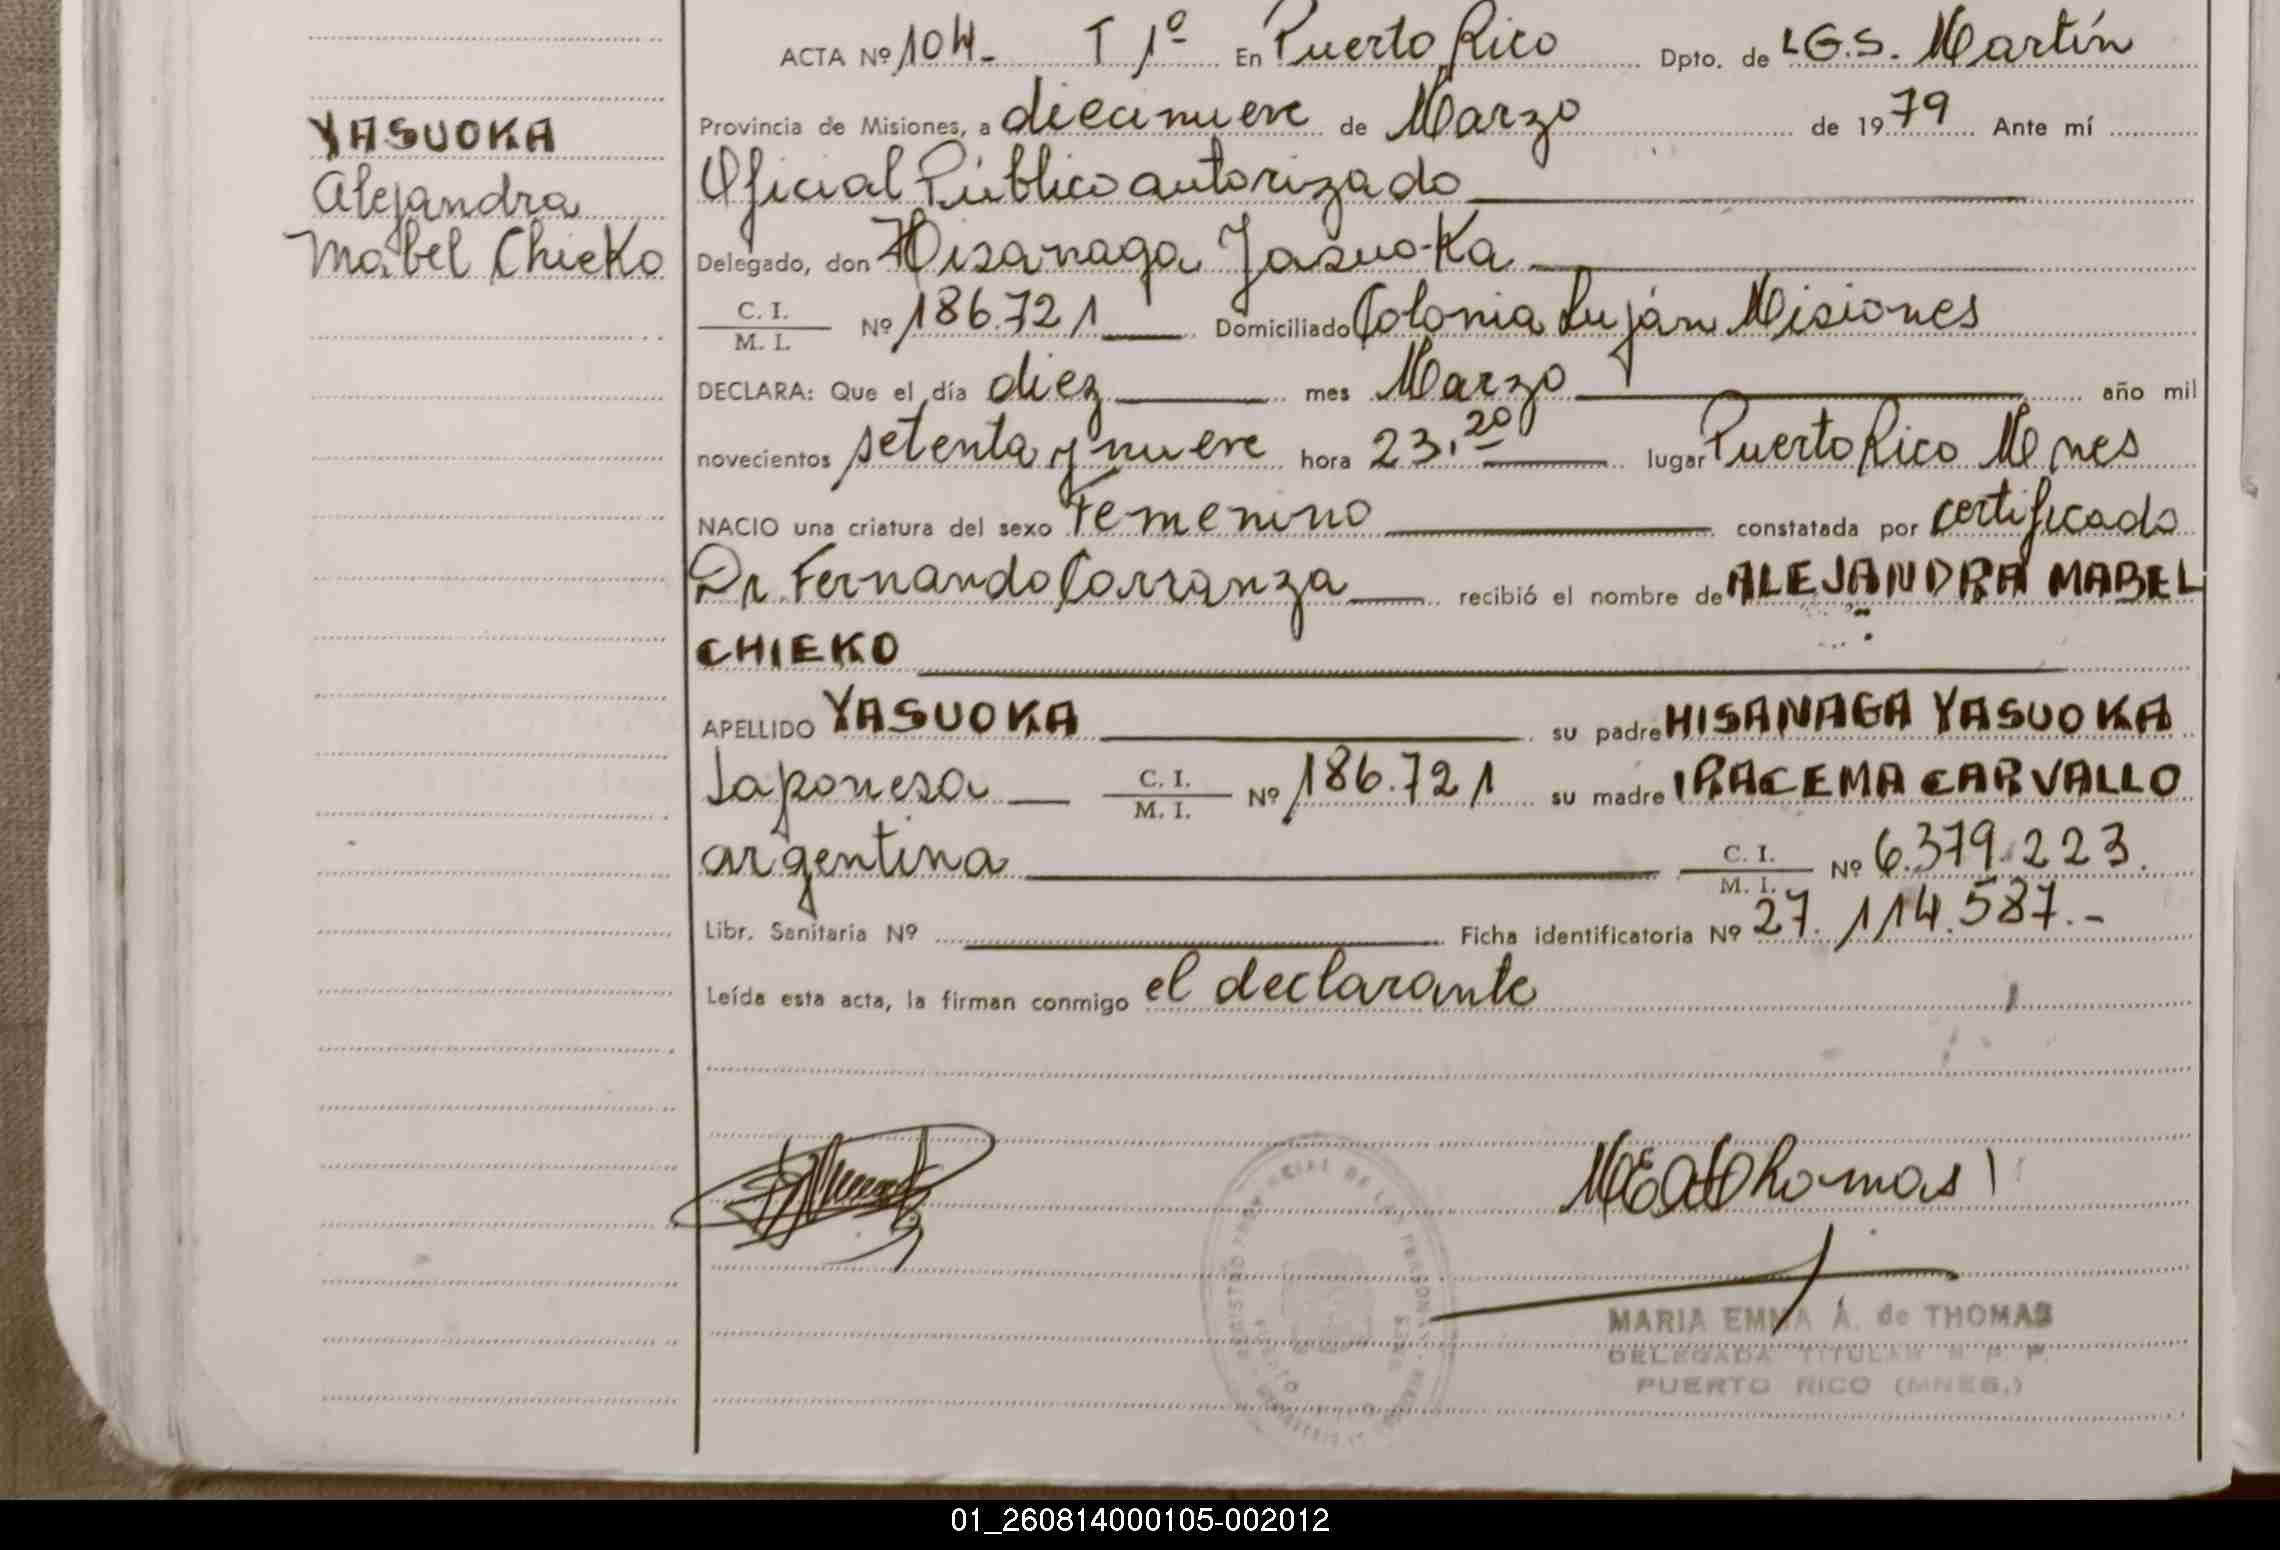 ACTA Nº 104- T 1º En Puerto Rico Dpto. de LG.S. Martín
Provincia de Misiones, a diecinueve de Marzo de 1979 Ante mí
YASUOKA
Alejandra
Mabel Chieko
Oficial Público autorizado
Delegado, don Hisanaga Yasuoka
C. I.
M. I.
Nº 186.721 Domiciliado Colonia Luján Misiones
DECLARA: Que el día diez mes Marzo año mil
novecientos setenta y nueve hora 23.20 lugar Puerto Rico Mnes
NACIO una criatura del sexo Femenino constatada por certificado
Dr. Fernando Carranza recibió el nombre de ALEJANDRA MABEL
CHIEKO
APELLIDO YASUOKA su padre HISANAGA YASUOKA
Japonesa C. I. M. I. Nº 186.721 su madre IRACEMA CARVALLO
argentina C. I. M. I. Nº 6.379.223.
Libr. Sanitaria Nº Ficha identificatoria Nº 27.114.587.-
Leída esta acta, la firman conmigo el declarante
MEAdThomas
MARIA EMMA A. de THOMAS
DELEGADA TITULAR R. P. P.
PUERTO RICO (MNES.)
01_260814000105-002012